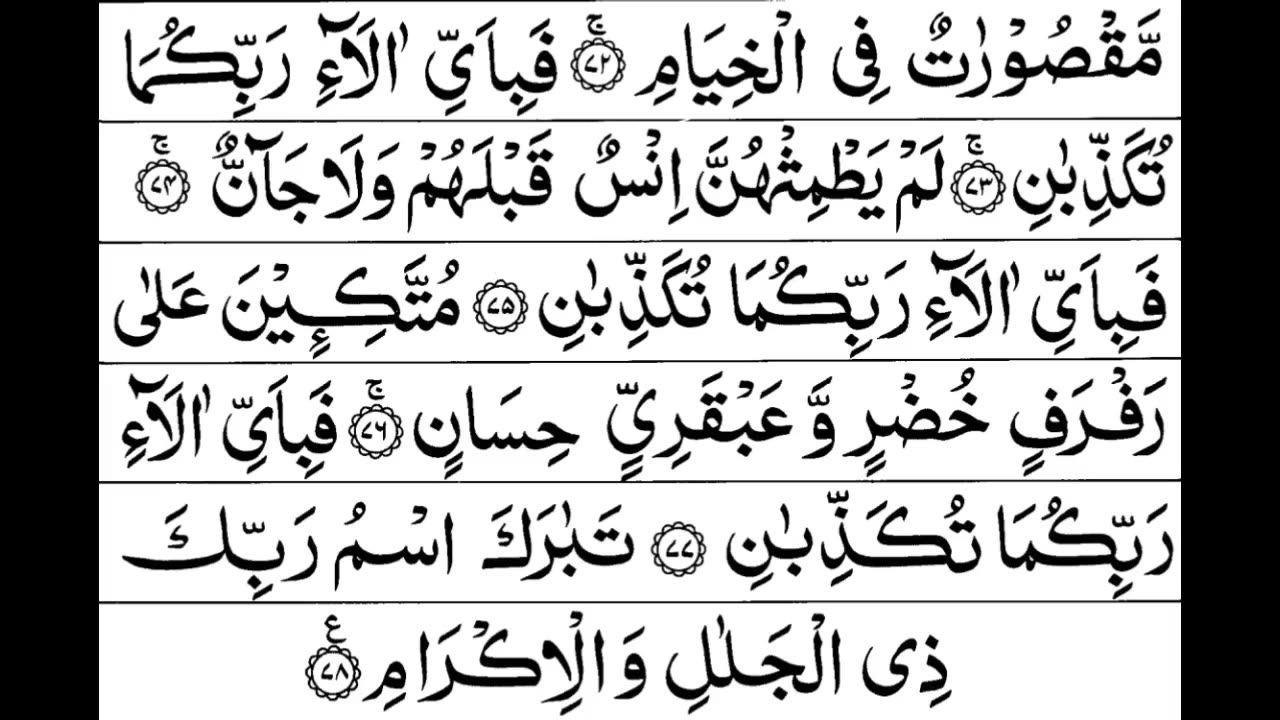 مَّقْصُوْرٰتٌ فِی الْخِیَامِ ۚ‏﴿۷۲﴾ فَبِاَیِّ اٰلَآءِ رَبِّكُمَا
تُكَذِّبٰنِ ۚ‏﴿۷۳﴾ لَمْ یَطْمِثْهُنَّ اِنْسٌ قَبْلَهُمْ وَلَا جَآنٌّ ۚ‏﴿۷۴﴾
فَبِاَیِّ اٰلَآءِ رَبِّكُمَا تُكَذِّبٰنِ ﴿۷۵﴾ مُتَّكِـِٕیْنَ عَلٰی
رَفْرَفٍ خُضْرٍ وَّ عَبْقَرِیٍّ حِسَانٍ ۚ‏﴿۷۶﴾ فَبِاَیِّ اٰلَآءِ
رَبِّكُمَا تُكَذِّبٰنِ ﴿۷۷﴾ تَبٰرَكَ اسْمُ رَبِّكَ
ذِی الْجَلٰلِ وَ الْاِكْرَامِ ﴿۷۸﴾ ع